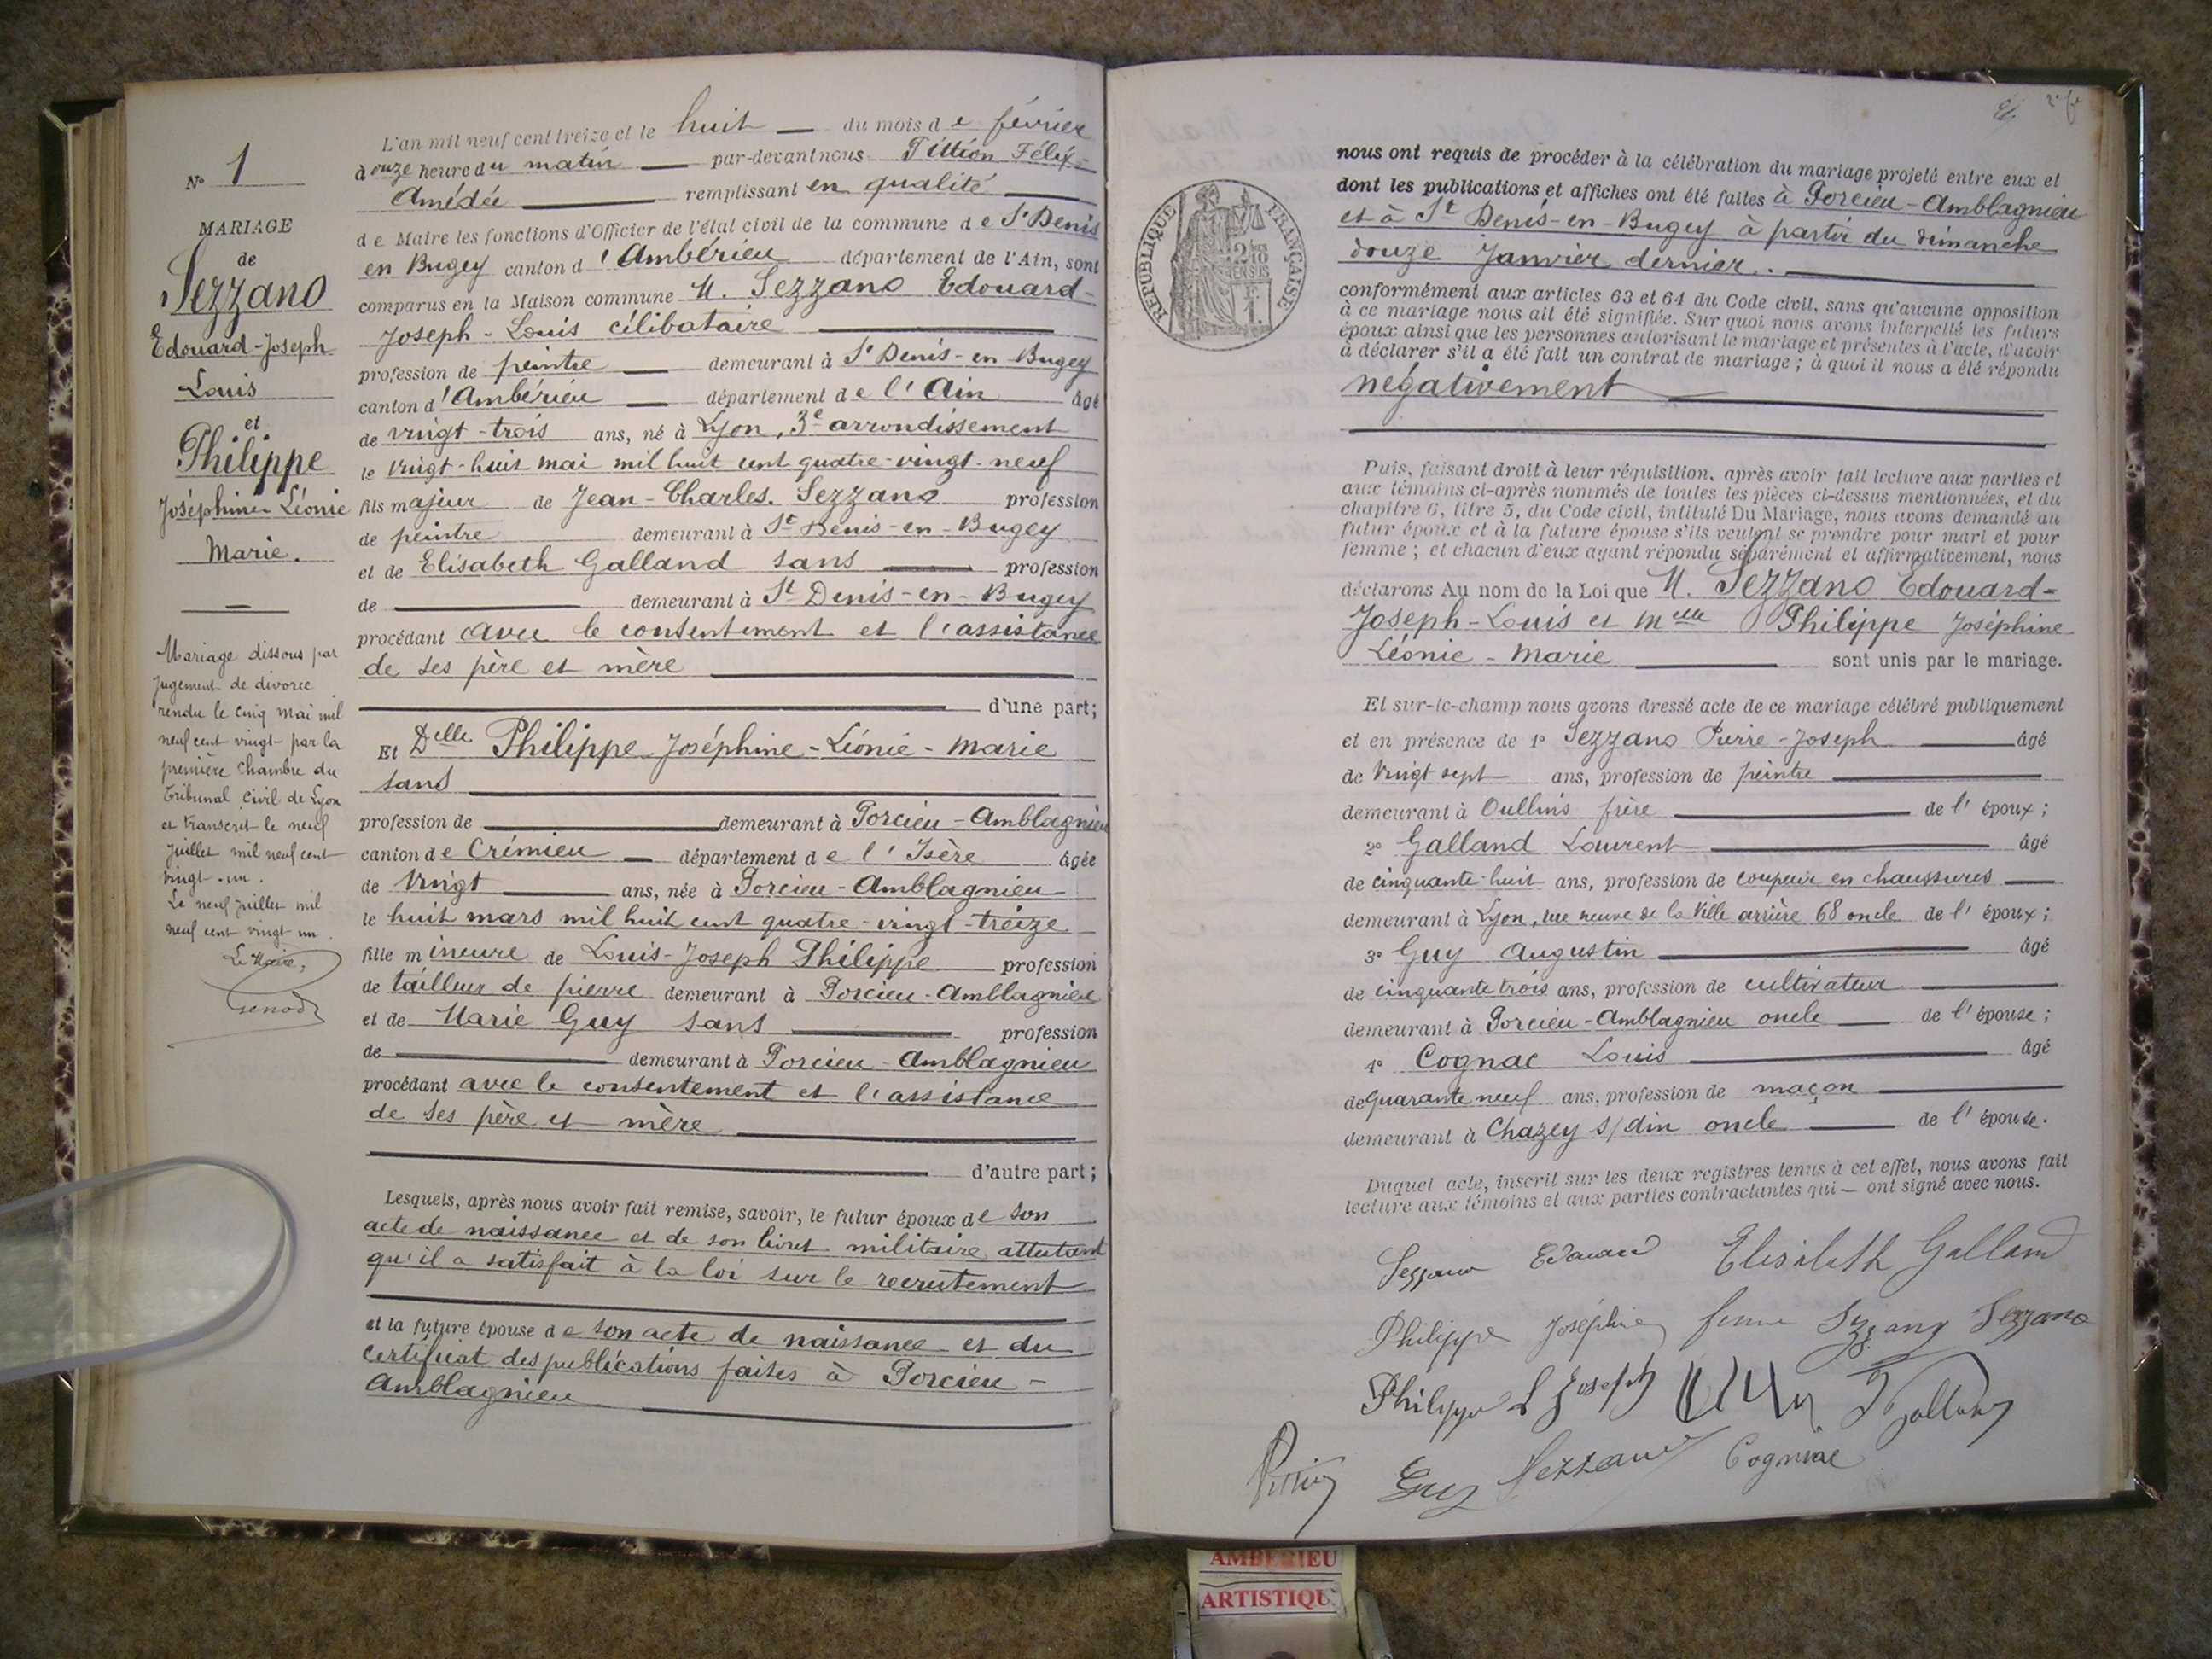 N° 1
MARIAGE
de
Sezzano
Edouard-Joseph
Louis
et
Philippe
Joséphine-Léonie
Marie.
Mariage dissous par
jugement de divorce
rendu le cinq mai mil
neuf cent vingt par la
première chambre du
Tribunal civil de Lyon
et transcrit le neuf
juillet mil neuf cent
vingt-un.
Le neuf juillet mil
neuf cent vingt un
Le Maire,
Genod
L'an mil neuf cent treize et le huit du mois de février
à onze heure du matin par-devant nous Pittion Félix-
Amédée remplissant en qualité
de Maire les fonctions d'Officier de l'état civil de la commune de St Denis
en Bugey canton d'Ambérieu département de l'Ain, sont
comparus en la Maison commune M. Sezzano Edouard-
Joseph-Louis célibataire
profession de peintre demeurant à St Denis-en-Bugey
canton d'Ambérieu département de l'Ain âgé
de vingt-trois ans, né à Lyon, 3e arrondissement
le vingt-huit mai mil huit cent quatre-vingt-neuf
fils majeur de Jean-Charles. Sezzano profession
de peintre demeurant à St Denis-en-Bugey
et de Elisabeth Galland sans profession
de demeurant à St Denis-en-Bugey
procédant avec le consentement et l'assistance
de ses père et mère
d'une part;
Et Delle Philippe Joséphine-Léonie-Marie
sans
profession de demeurant à Porcieu-Amblagnieu
canton de Crémieu département de l'Isère âgée
de vingt ans, née à Porcieu-Amblagnieu
le huit mars mil huit cent quatre-vingt-treize
fille mineure de Louis-Joseph Philippe profession
de tailleur de pierre demeurant à Porcieu-Amblagnieu
et de Marie Guy sans profession
de demeurant à Porcieu-Amblagnieu
procédant avec le consentement et l'assistance
de ses père et mère
d'autre part;
Lesquels, après nous avoir fait remise, savoir, le futur époux de son
acte de naissance et de son livret militaire attestant
qu'il a satisfait à la loi sur le recrutement
et la future épouse de son acte de naissance et du
certificat des publications faites à Porcieu-
Amblagnieu
2e f.
REPUBLIQUE FRANÇAISE
nous ont requis de procéder à la célébration du mariage projeté entre eux et
dont les publications et affiches ont été faites à Porcieu-Amblagnieu
et à St Denis-en-Bugey à partir du dimanche
douze Janvier dernier.
conformément aux articles 63 et 64 du Code civil, sans qu'aucune opposition
à ce mariage nous ait été signifiée. Sur quoi nous avons interpellé les futurs
époux ainsi que les personnes autorisant le mariage et présentes à l'acte, d'avoir
à déclarer s'il a été fait un contrat de mariage; à quoi il nous a été répondu
négativement
Puis, faisant droit à leur réquisition, après avoir fait lecture aux parties et
aux témoins ci-après nommés de toutes les pièces ci-dessus mentionnées, et du
chapitre 6, titre 5, du Code civil, intitulé Du Mariage, nous avons demandé au
futur époux et à la future épouse s'ils veulent se prendre pour mari et pour
femme; et chacun d'eux ayant répondu séparément et affirmativement, nous
déclarons Au nom de la Loi que M. Sezzano Edouard-
Joseph-Louis et Melle Philippe Joséphine
Léonie-Marie sont unis par le mariage.
Et sur-le-champ nous avons dressé acte de ce mariage célébré publiquement
et en présence de 1° Sezzano Pierre-Joseph âgé
de vingt sept ans, profession de peintre
demeurant à Oullins frère de l'époux;
2° Galland Laurent âgé
de cinquante-huit ans, profession de coupeur en chaussures
demeurant à Lyon, rue neuve de la Ville arrière 68 oncle de l'époux;
3° Guy Augustin âgé
de cinquante trois ans, profession de cultivateur
demeurant à Porcieu-Amblagnieu oncle de l'épouse;
4° Cognac Louis âgé
de quarante neuf ans, profession de maçon
demeurant à Chazey s/din oncle de l'épouse.
Duquel acte, inscrit sur les deux registres tenus à cet effet, nous avons fait
lecture aux témoins et aux parties contractantes qui — ont signé avec nous.
Sezzano Edouard Elisabeth Galland
Philippe Joséphine femme Sezzano Sezzano
Philippe L Joseph Galland
Pittion Guy Sezzano Cogniac
AMBERIEU
ARTISTIQU